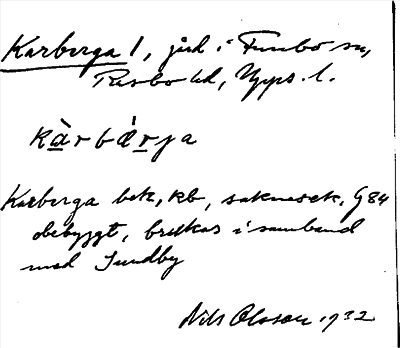 Karberga 1, jord i Funbo sn,
Rasbo hd, Upps. l.
kàrbǽrja
Karberga bek, kb, saknas ek. G 84
obebyggt, brukas i samband
med Sundby
Nils Olsson 1932